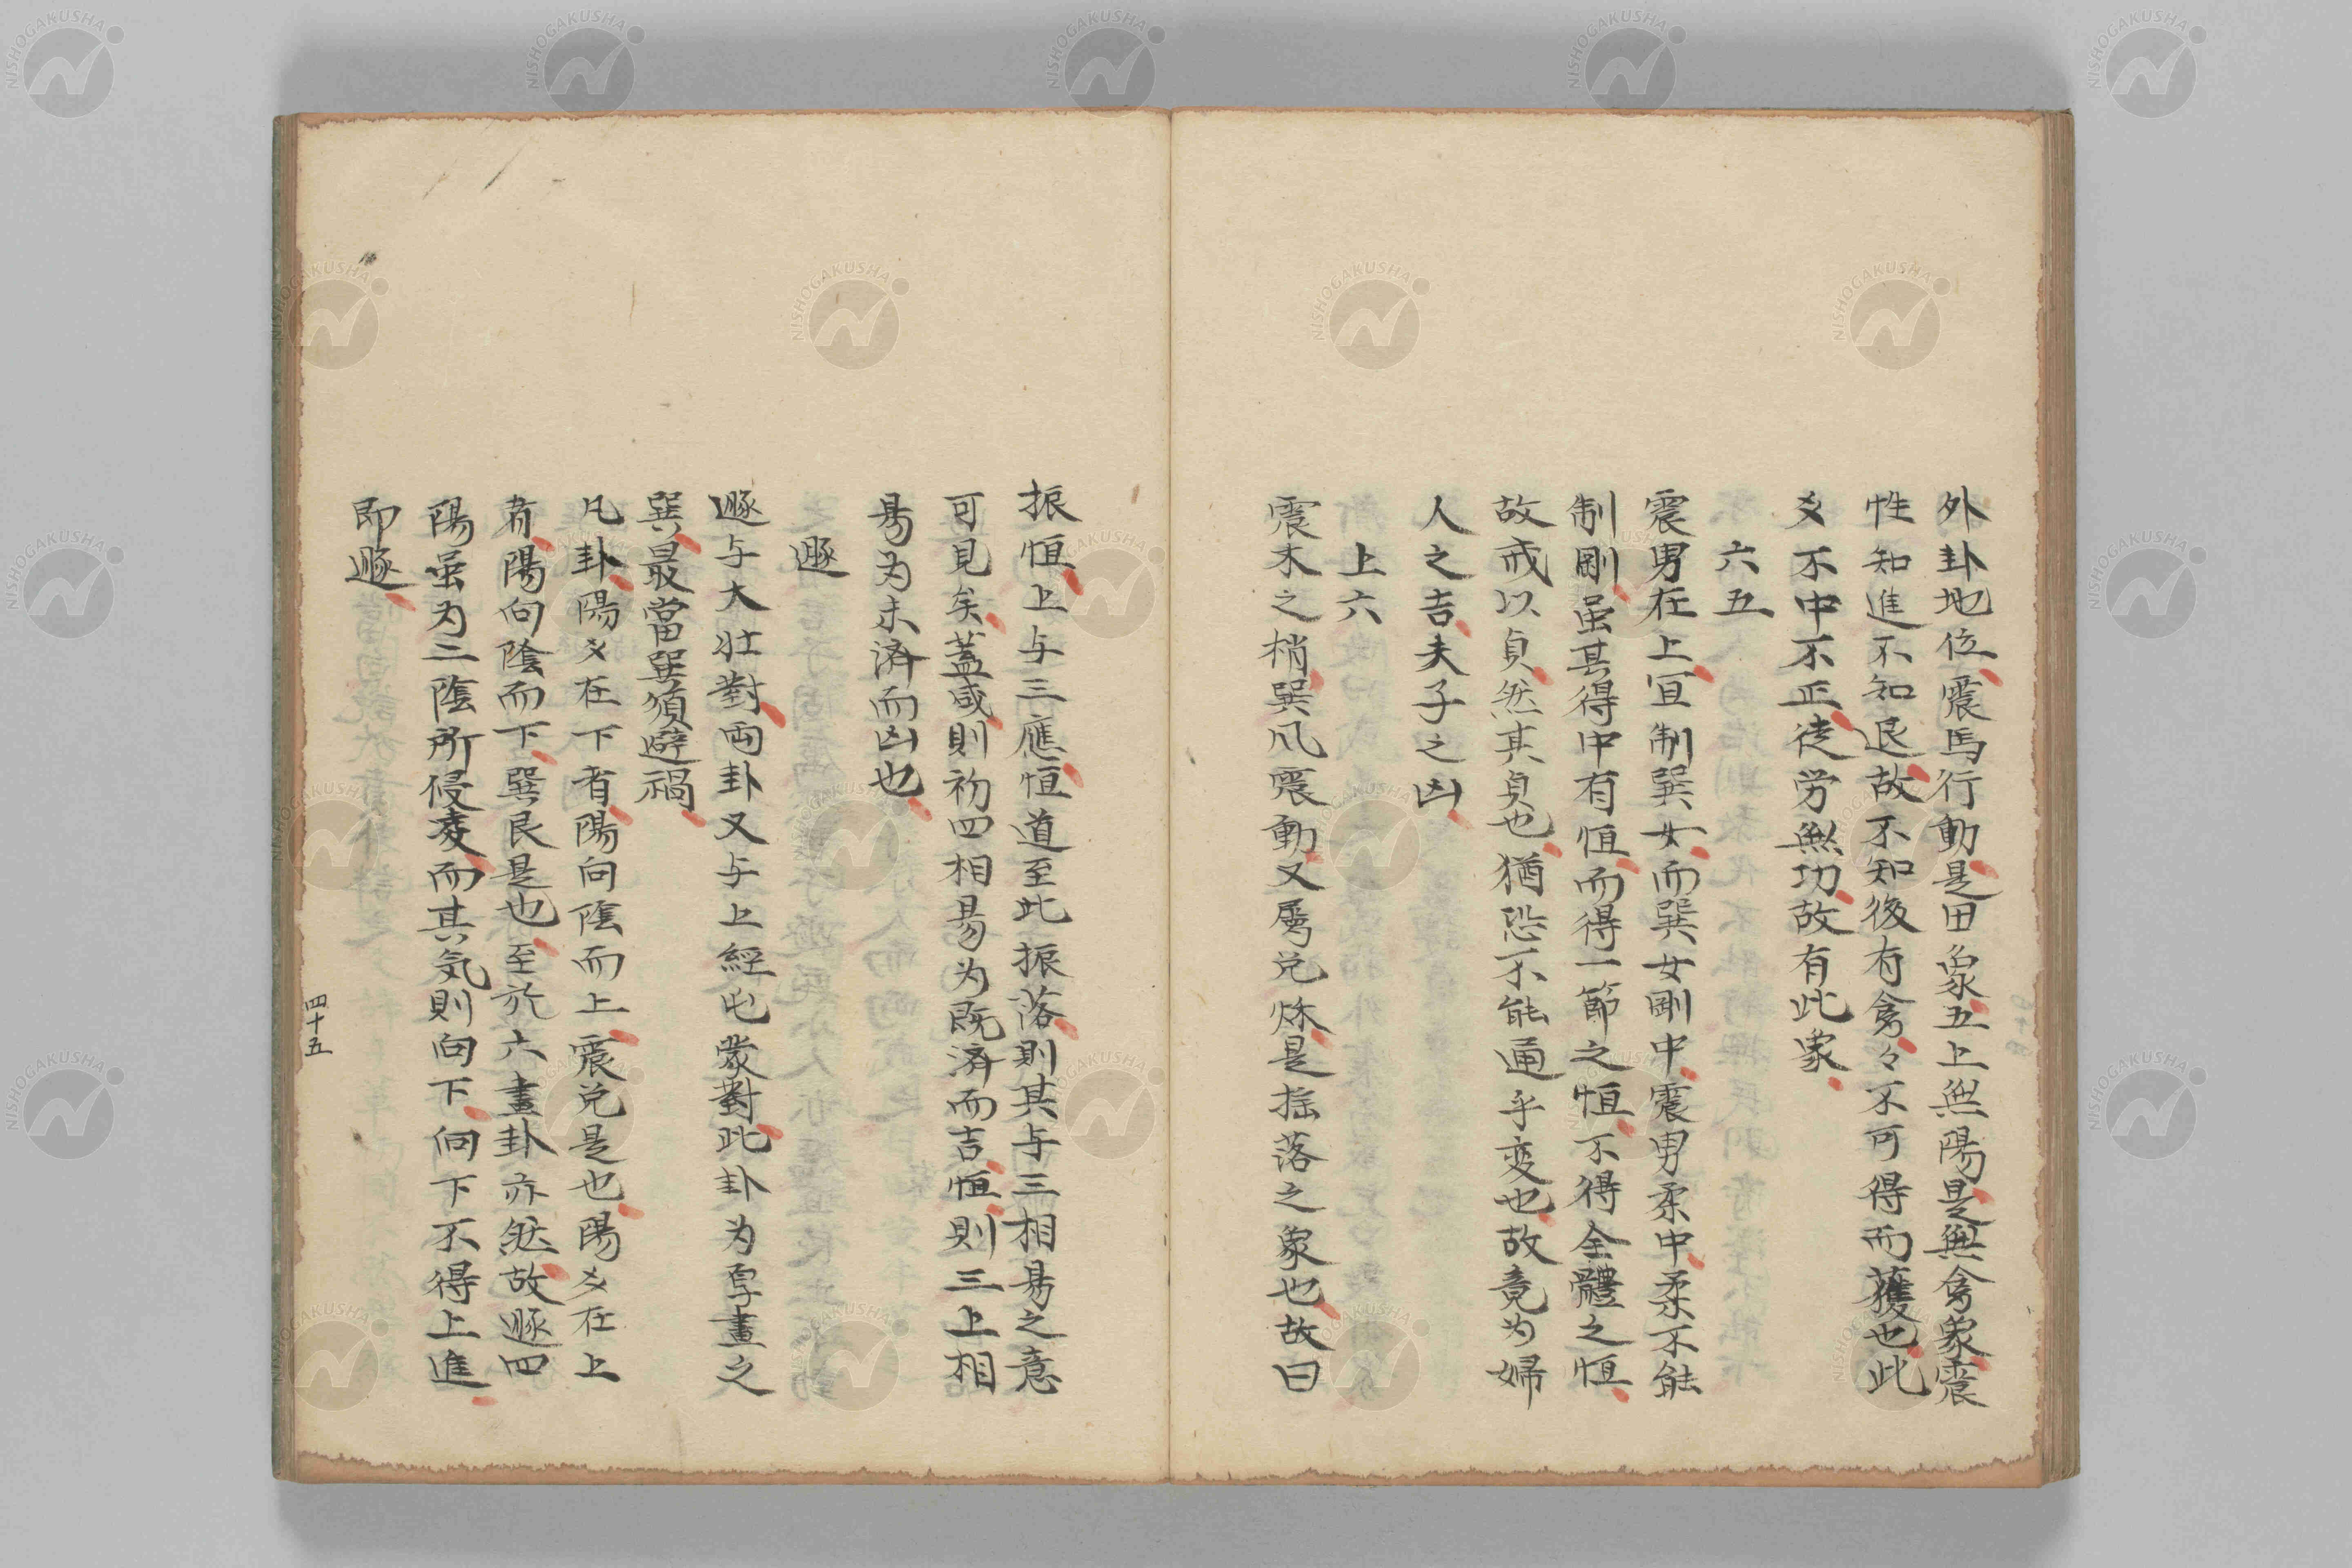 外卦地位震馬行動是田象五上無陽是無禽象震
性知進不知退故不知後有禽々不可得而獲也此
爻不中不正徒労無功故有此象
六五
震男在上宜制巽女而巽女剛中震男柔中柔不能
制剛虽其得中有恒而得一節之恒不得全體之恒
故戒以貞然其貞也猶恐不能通乎変也故竟为婦
人之吉夫子之凶
上六
震木之梢巽凡震動又属兌秌是揺落之象也故曰
振恒上与三應恒道至此振落則其与三相易之意
可見矣蓋咸則初四相易为既済而吉恒則三上相
易为未済而凶也
遯
遯与大壮對両卦又与上經屯蒙對此卦为厚畫之
巽最當巽須避禍
凡卦陽爻在下者陽向陰而上震兌是也陽爻在上
者陽向陰而下巽艮是也至於六畫卦亦然故遯四
陽虽为二陰所侵凌而其気則向下向下不得上進
即遯
四十五
NISHOGAKUSHA